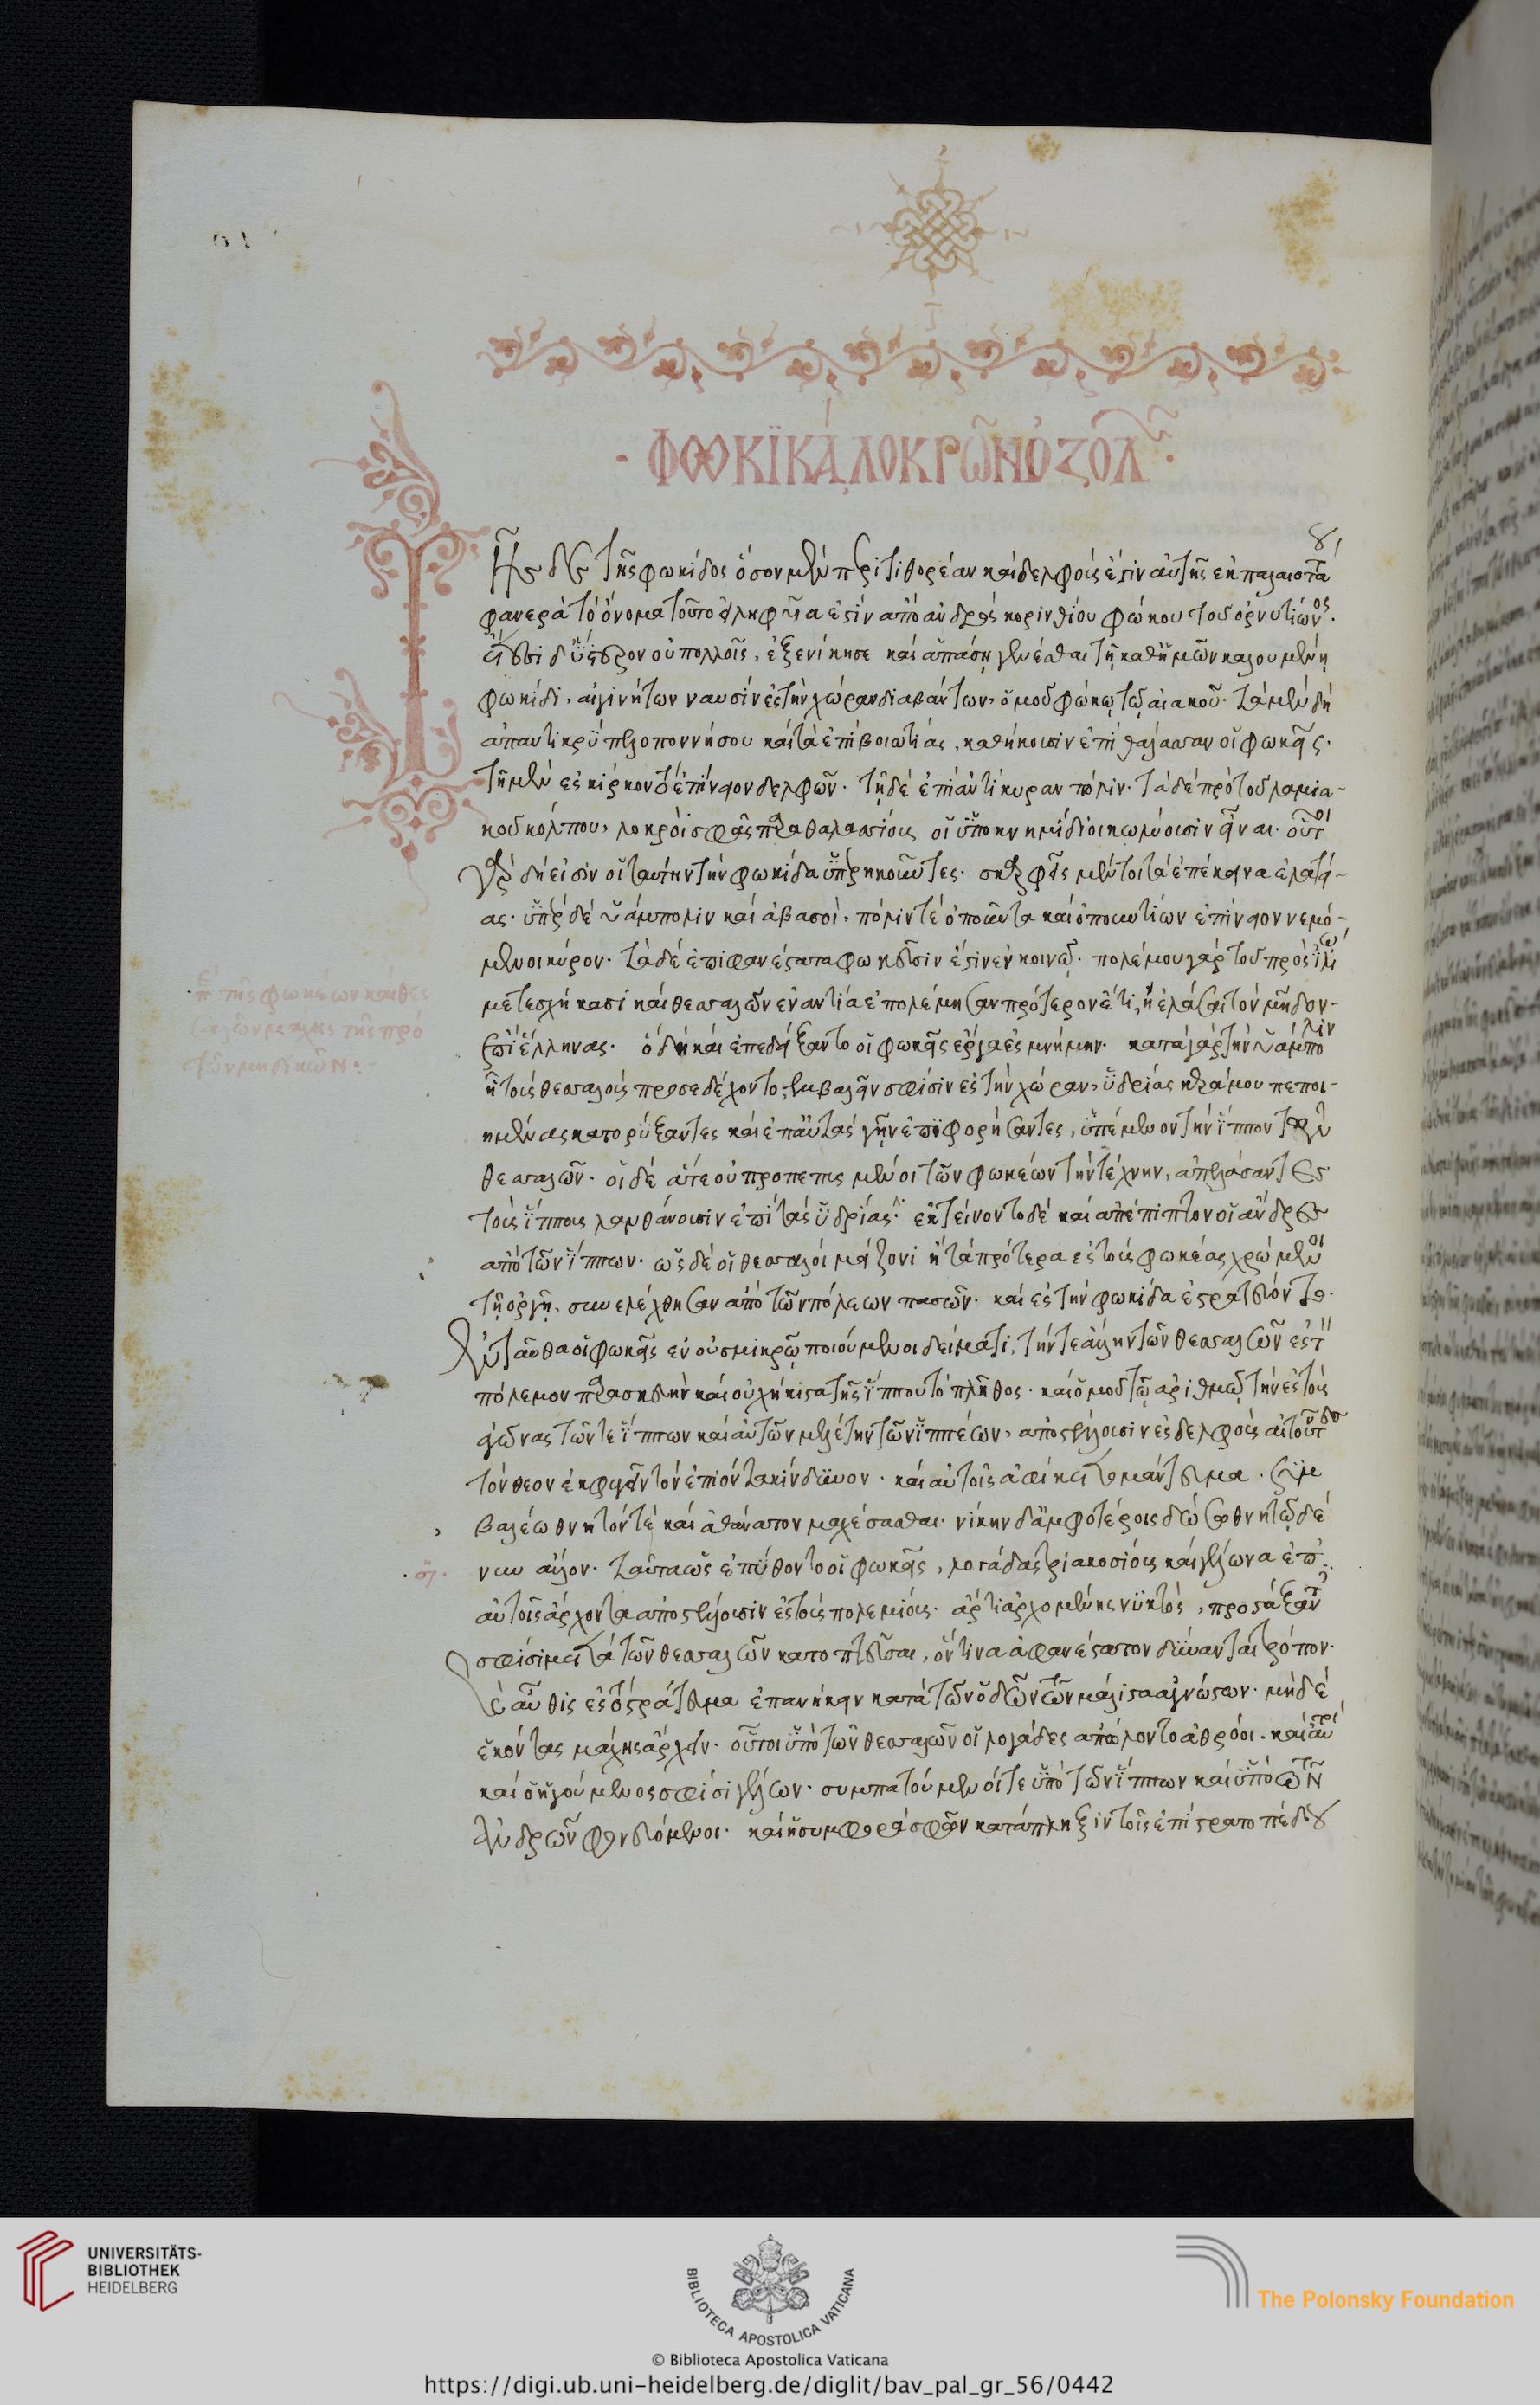 · ΦΩΚΪΚᾺ ΛΟΚΡῶΝ ὈΖΟΛ ·
Γῆς δὲ τῆς φωκίδος ὅσον μὲν περὶ τιθορέαν καὶ δελφούς ἐστιν αὐτῆς ἐκ παλαιοτάτου
φανερὰ τὸ ὄνομα τοῦτο εἰληφυῖα ἐστὶν ἀπὸ ἀνδρὸς κορινθίου φώκου τοῦ ὀρνυτίωνος.
ἔτεσι δ' ὕστερον οὐ πολλοῖς, ἐξενίκησε καὶ ἁπάσῃ γενέσθαι τῇ καθ' ἡμῶν καλουμένῃ
φωκίδι, αἰγινήτων ναυσὶν ἐς τὴν χώραν διαβάντων, ὁμοῦ φώκῳ τῷ αἰακοῦ. τὰ μὲν δὴ
ἀπαντικρὺ πελοποννήσου καὶ τὰ ἐπὶ βοιωτίας, καθήκουσιν ἐπὶ θάλασσαν οἱ φωκεῖς.
τῇ μὲν ἐς κίρκον τὸ ἐπίνειον δελφῶν. τῇ δὲ ἐπὶ ἀντίκυραν πόλιν. τὰ δὲ πρὸ τοῦ λαμια-
κοῦ κόλπου, λοκροὶ σφᾶς παραθαλασσίους οἱ ὑποκνημίδιοι κωλύουσιν εἶναι. οὗτοι
γάρ δή εἰσιν οἱ ταύτην τὴν φωκίδα ὑπεροικοῦντες. σκαρφεῖς μὲν τοι τὰ ἐπέκεινα ἐλατεί-
ας. ὑπὲρ δὲ ὑάμπολιν καὶ ἄβας οἱ, πόλιν τε ὀποῦντα καὶ ὀπουντίων ἐπίνειον νεμό-
μενοι κύρον. τὰ δὲ ἐπιφανέστατα φωκεῦσιν ἐστὶν ἐν κοινῷ. πολέμου γὰρ τοῦ πρὸς ἰλίῳ
μετεσχήκασι καὶ θεσσαλῶν ἐναντία ἐπολέμησαν πρότερον ἔτι, ἢ ἐλάσαι τὸν μῆδον
ἐπὶ ἕλληνας. ὃ δὴ καὶ ἐπεδείξαντο οἱ φωκεῖς ἔργα ἐς μνήμην. κατὰ γὰρ τὴν ὑάμπολιν
ᾗ τοὺς θεσσαλοὺς προσεδέχοντο, ἐμβαλεῖν σφίσιν ἐς τὴν χώραν, ὑδρίας κεράμου πεποι-
ημένας κατορύξαντες καὶ ἐπ' αὐτὰς γῆν ἐπιφορήσαντες, ὑπέμενον τὴν ἵππον τῶν
θεσσαλῶν. οἱ δὲ ἅτε οὐ προπεπυσμένοι τῶν φωκέων τὴν τέχνην, ἀπελάσαντες
τοὺς ἵππους λανθάνουσιν ἐπὶ τὰς ὑδρίας. ἐκτείνοντο δὲ καὶ ἀπέπιπτον οἱ ἄνδρες
ἀπὸ τῶν ἵππων. ὡς δὲ οἱ θεσσαλοὶ μείζονι ἢ τὰ πρότερα ἐς τοὺς φωκέας χρώμενοι
τῇ ὀργῇ, συνελέχθησαν ἀπὸ τῶν πόλεων πασῶν. καὶ ἐς τὴν φωκίδα ἐστρατεύοντο.
ἐνταῦθα οἱ φωκεῖς ἐν οὐ σμικρῷ ποιούμενοι δείματι, τήν τε ἄλλην τῶν θεσσαλῶν ἐς τὸν
πόλεμον παρασκευὴν καὶ οὐχ ἥκιστα τῆς ἵππου τὸ πλῆθος. καὶ ὁμοῦ τῷ ἀριθμῷ τὴν ἐς τοὺς
ἀγῶνας τῶν τε ἵππων καὶ αὐτῶν μελέτην τῶν ἱππέων, ἀποστέλλουσιν ἐς δελφοὺς αἰτοῦντες
τὸν θεὸν ἐκφυγεῖν τὸν ἐπιόντα κίνδυνον. καὶ αὐτοῖς ἀφίκετο μάντευμα. συμ
βαλέω θνητόν τε καὶ ἀθάνατον μαχέσασθαι. νίκην δ' ἀμφοτέροις δώσω θνητῷ δέ
νυ ἄλλον. ταῦτα ὡς ἐπύθοντο οἱ φωκεῖς, λογάδας τριακοσίους καὶ γέλωνα ἐπ'
αὐτοῖς ἄρχοντα ἀποστέλλουσιν ἐς τοὺς πολεμίους. ἄρτι ἀρχομένης νυκτός, προστάξαντες
σφίσι μετὰ τῶν θεσσαλῶν κατοπτεῦσαι, ὅντινα ἀφανέστατον δύνανται τρόπον.
ἐσαῦθις ἐς τὸ στράτευμα ἐπανήκειν κατὰ τῶν ὁδῶν τῶν μάλιστα ἀγνώστων. μηδὲ
ἑκόντας μάχης ἄρχειν. οὗτοι ὑπὸ τῶν θεσσαλῶν οἱ λογάδες ἀπώλοντο ἀθρόοι. καὶ αὐτοὶ
καὶ ὁ ἡγούμενος σφίσι γέλων. συμπατούμενοί τε ὑπὸ τῶν ἵππων καὶ ὑπὸ τῶν
ἀνδρῶν φονευόμενοι. καὶ ἡ συμφορὰ σφῶν κατάπληξιν τοῖς ἐπὶ στρατοπέδου
τῆς φωκέων καὶ θες
σαλῶν μάχης τῆς πρὸ
τῶν μηδικῶν:
UNIVERSITÄTS-
BIBLIOTHEK
HEIDELBERG
BIBLIOTECA APOSTOLICA VATICANA
The Polonsky Foundation
© Biblioteca Apostolica Vaticana
https://digi.ub.uni-heidelberg.de/diglit/bav_pal_gr_56/0442